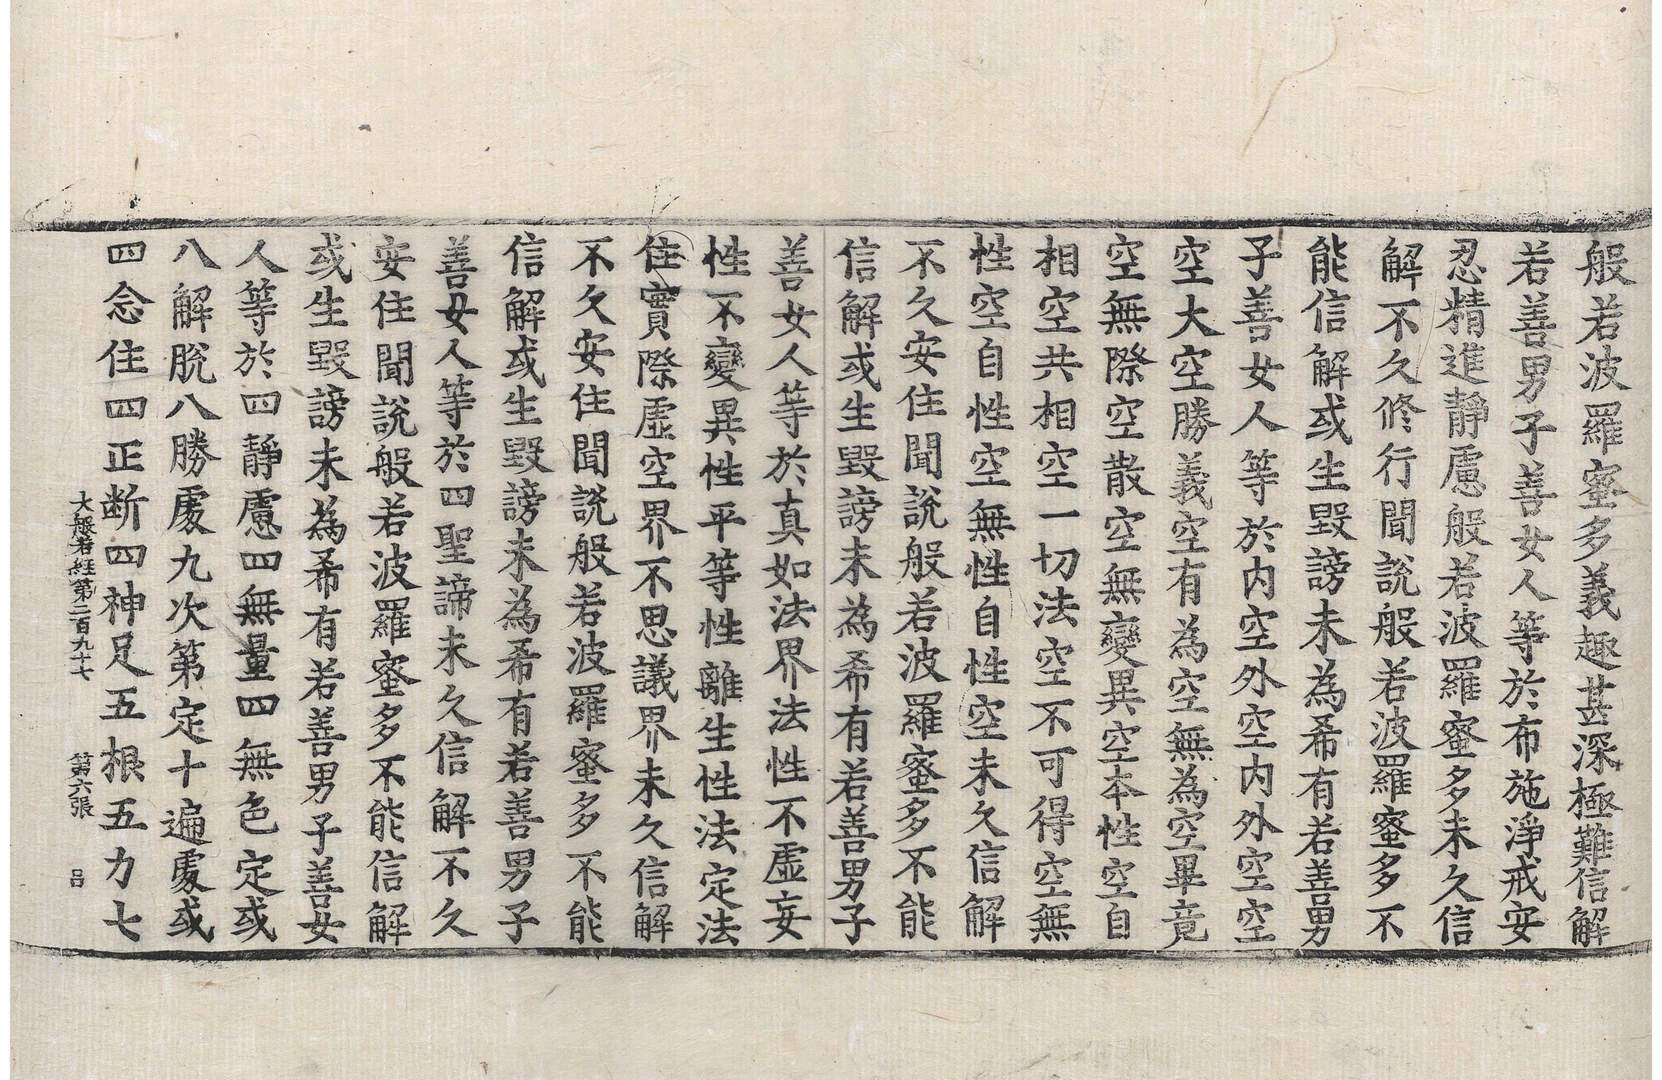 般若波羅蜜多義趣甚深極難信解
若善男子善女人等於布施淨戒安
忍精進靜慮般若波羅蜜多未久信
解不久修行聞說般若波羅蜜多不
能信解或生毀謗未為希有若善男
子善女人等於內空外空內外空空
空大空勝義空有為空無為空畢竟
空無際空散空無變異空本性空自
相空共相空一切法空不可得空無
性空自性空無性自性空未久信解
不久安住聞說般若波羅蜜多不能
信解或生毀謗未為希有若善男子
善女人等於真如法界法性不虛妄
性不變異性平等性離生性法定法
住實際虛空界不思議界未久信解
不久安住聞說般若波羅蜜多不能
信解或生毀謗未為希有若善男子
善女人等於四聖諦未久信解不久
安住聞說般若波羅蜜多不能信解
或生毀謗未為希有若善男子善女
人等於四靜慮四無量四無色定或
八解脫八勝處九次第定十遍處或
四念住四正断四神足五根五力七
大般若経第二百九十七 第六張 呂